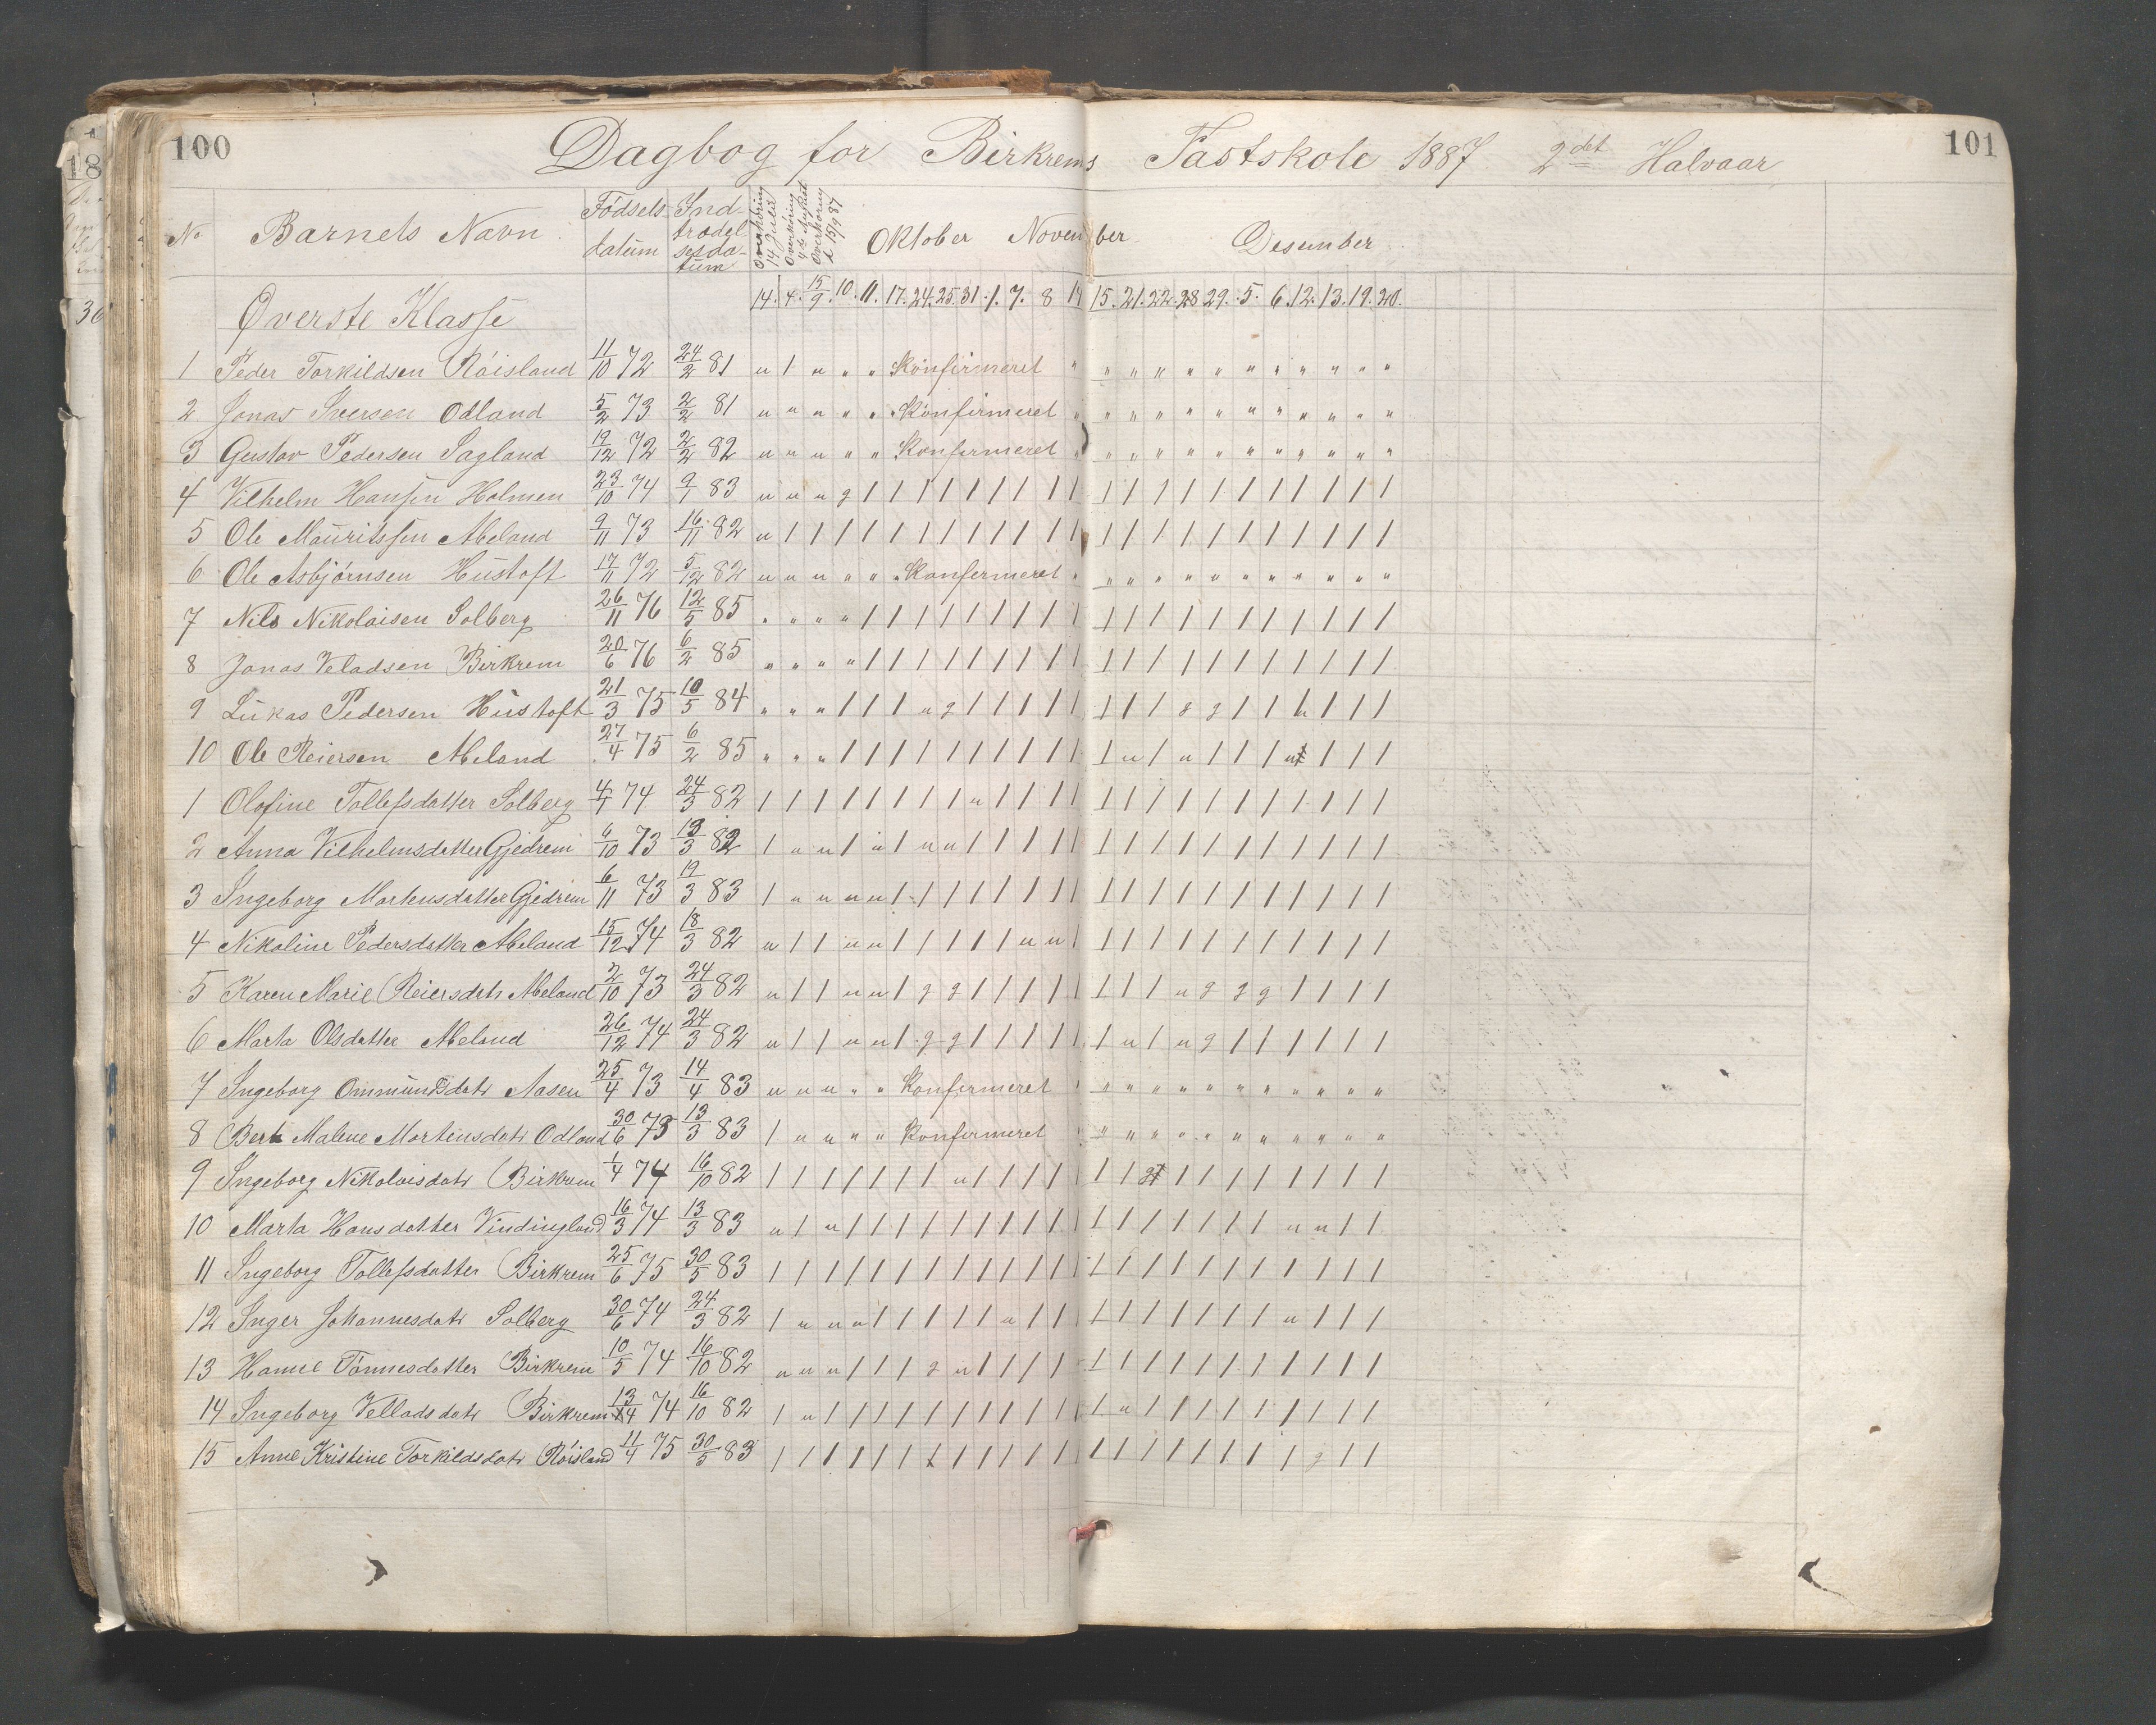 100 Dagbog for Birkrems Fastskole 1887 2det Halvaar 101
No Barnets Navn Fødsels datum Indtrædelsesdatum Overhøring 14 Juli Overhøring 4de August Overhøring d. 15/9 87 Oktober November Desember
14. 4. 15/9. 10. 11. 17. 24. 25. 31. 1. 7. 8 14 15. 21. 22. 28 29. 5. 6. 12. 13. 19. 20.
Øverste Klasse
1 Peder Torkildsen Röisland 11/10 72 24/2 81 u / u " " Konfirmeret " " " " " " " " " " " "
2 Jonas Iversen Odland 5/2 73 2/2 81 u u u " " Konfirmeret " " " " " " " " " " " "
3 Gustav Pedersen Sagland 19/12 72 2/2 82 u u u " " Konfirmeret " " " " " " " " " " " "
4 Vilhelm Hansen Holmen 23/10 74 9/1 83 u u u g / / / / / / / / / / / / / / / / / / / /
5 Ole Mauritssen Meland 9/11 73 16/11 82 u / / / / / / / / / / / / / / / / / / / / / / /
6 Ole Asbjørnsen Hustoft 17/11 72 5/12 82 u u u " " " Konfermeret " " " " " " " " " " " "
7 Nils Nikolaisen Solberg 26/11 76 12/5 85 " " " " / / / / / / / / / / / / / / / / / / / /
8 Jonas Veladsen Birkrem 20/6 76 6/2 85 " " " " / / / / / / / / / / / / / / / / / / / /
9 Lukas Pedersen Hustoft 21/3 75 10/5 84 " " " / / / u g / / / / / / / / g g / / u / / /
10 Ole Reiersen Meland 27/4 75 6/2 85 " " u / / / / / / / / / / / u / u / / / u / / /
1 Olofine Tollefsdatter Solberg 4/1 74 24/3 82 / / / / / / / / / u / / / / / / / / / / / / / / /
2 Anna Vilhelmsdatter Gjedrem 4/10 73 13/3 82 / u u / u / u u / / / / / / / / / / / / / / / /
3 Ingeborg Martensdatter Gjedrem 6/11 73 19/3 83 / u u u u / / / / / / / / / / / / / / / / / / /
4 Nikoline Pedersdatter Meland 15/12 74 18/3 82 u / / u u / / / / / u u / / / / / / / / / / / /
5 Karen Marie Reiersdatr Meland 2/10 73 24/3 82 u / / u u / g g / / / / / / / / u g g g / / / /
6 Marta Olsdatter Meland 26/12 74 24/3 82 u / / u u / g g / / / / / / u / u g / / / / / /
7 Ingeborg Ommundsdatr Aasen 25/4 73 14/4 83 u u u " " Konfirmeret " " " " " " " " " " " "
8 Berte Malene Martinsdatr Odland 30/6 73 13/3 83 / u u " " Konfirmeret " " " " " " " " " " " "
9 Ingeborg Nikolaisdatr Birkrem 1/4 74 16/10 82 / / / / / / / / u / / / / / / g / / / / / / / /
10 Marta Hansdatter Vindingland 16/3 74 13/3 83 u / u / / / / / / / / / / / / / / / / / u u / /
11 Ingeborg Tollefsdatter Birkrem 25/6 75 30/5 83 / / / / / / / / / / / / / / / / / / / / / / / /
12 Inger Johannesdatr Solberg 30/6 74 24/3 82 / u u u / / / / / / u / / / / / / / / / u / / /
13 Hanne Tönnesdatter Birkrem 10/5 74 16/10 82 u u u / / / g u / / / / / / / / / / / / / / / /
14 Ingeborg Velladsdatr Birkrem 13/4 74 16/10 82 / u / / / / / / / / / / / / u / / / / / / / / /
15 Anne Kristine Torkildsdatr Röisland 11/4 75 30/5 83 / / / / / / / / / / / / / / / / / / / / / g / /